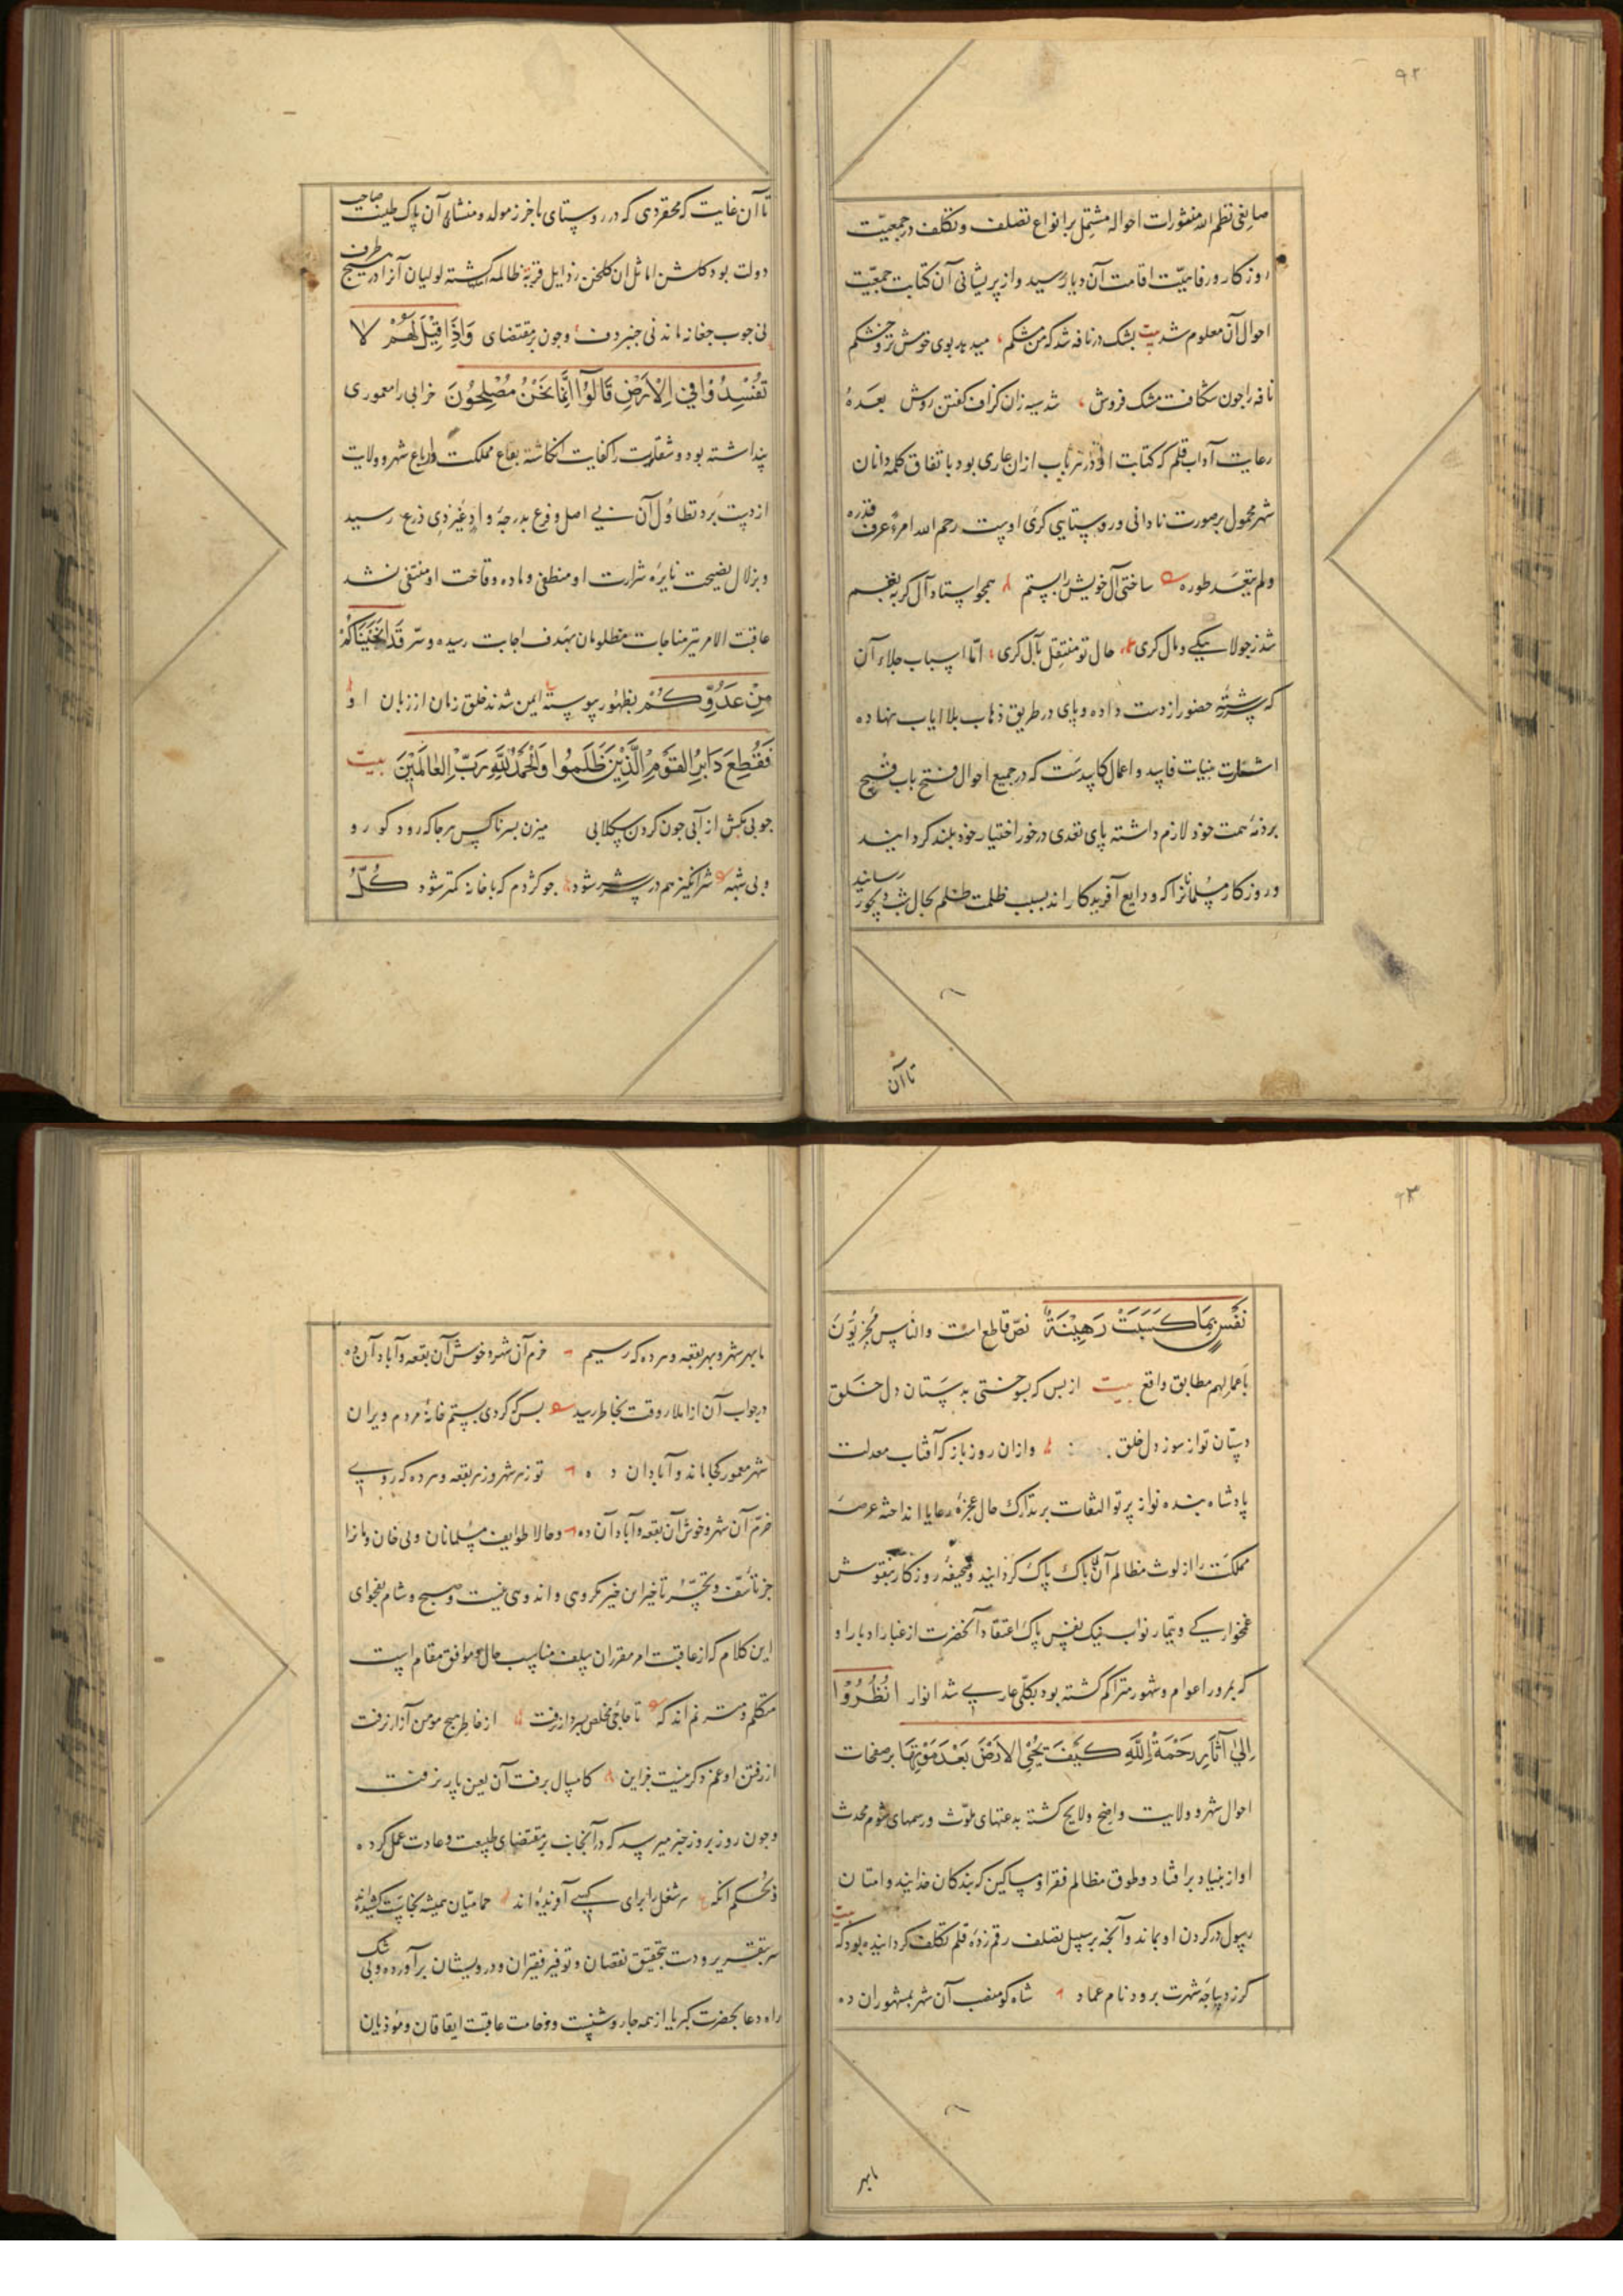 ۹۲
صایغی نظم الله منثورات احواله مشتمل بر انواع تصلف و تکلف در جمعیّت
روزکار و رفاهیّت اقامت آن دیار رسید و از پریشانی آن کتابت جمعیّت
احوال آن معلوم شد بیت پشک در نافه شد که من مشکم میدهد بوی خوش تر و خشکم
نافه را جون شکافت مشک فروش شد سیه زان کزاف کفتن روش بعدهٔ
رعایت آداب قلم که کتابت او در هر باب از ان عاری بود باتفاق کلمه دانان
شهر محمول بر صورت نادانی و روستایی کری اوست رحم الله امرءً عرف قدره
ولم یتعدّ طوره ساختی آل خویش را بستم همجو استاد آل کر به بقم
شد ز جولاهیکی و مال کری حال تو منتقل بآل کری امّا اسباب جلاء آن
که سررشتهٔ حضور از دست داده و پای در طریق ذهاب بلا ایاب نهاده
اشارت بنیات فاسد و اعمال کاسدست که در جمیع احوال فتح باب قبیح
بر ذمهٔ همت خود لازم داشته پای تعدی در خور اختیار خود بلند کردانید
و روزکار مسلمانانرا که ودایع آفریدکاراند بسبب ظلمت ظلم بحال شب دیجور رسانید
تا آن
تا آن غایت که محقردی که در روستای باخرز مولد و منشاء آن پاک طینت صاحب
دولت بود کلشن اماثل ان کلخن رذایل قریهٔ ظالمه کشته لولیان آنرا در هیج طرف
نی جوب جغانه ماند نی جنبر دف وجون بمقتضای وَاِذَا قِيْلَ لَهُمْ لا
تُفْسِدُوْا فِي الْاَرْضِ قَالُوْا اِنَّمَا نَحْنُ مُصْلِحُوْنَ خرابی را معموری
پنداشته بود و شقاوت را کفایت انکاشته بقاع مملکت و رباع شهر و ولایت
از دست برد تطاول آن بی اصل و فرع بدرجهٔ وادٍ غیر ذی زرع رسید
و بزلال نصیحت نایرهٔ شرارت او منطفی و ماده وقاحت او منتفی نشد
عاقبت الامر تیر مناجات مظلومان بهدف اجابت رسیده و سرّ قَدْ اَنْجَيْنَاكُمْ
مِنْ عَدُوِّكُمْ بظهور پیوسته ایمن شدند خلق زمان از زبان او
فَقُطِعَ دَابِرُ الْقَوْمِ الَّذِيْنَ ظَلَمُوا وَالْحَمْدُ لِلّٰهِ رَبِّ الْعَالَمِيْنَ بیت
جوبی بکش از آبی جون کردن سکلابی میزن بسر ناکس هر جا که رود کو رو
و بی شبهه شرانکیز هم در سر شر شود جو کژدم که با خانه کمتر شود كُلُّ
۹۳
نَفْسٍ بِمَا كَسَبَتْ رَهِيْنَةٌ نصّ قاطع است والناس مجزیّون
باعمالهم مطابق واقع بیت از بس که بسوختی بدستان دل خلق
دستان تو از سوز دل خلق و ازان روز باز که آفتاب معدلت
پادشاه بنده نواز پرتو التفات بر تدارک حال عجزهٔ رعایا انداخته عرصهٔ
مملکت را از لوث مظالم آن ناپاک پاک کردانید و صحیفهٔ روزکار بنقوش
غمخوارکی و تیمار نواب نیک نفس پاک اعتقاد آنحضرت از غبار ادبار او
که بمرور اعوام و شهور متراکم کشته بود بکلی عاری شد انوار انْظُرُوْا
اِلٰي آثَارِ رَحْمَةِ اللّٰهِ كَيْفَ يُحْيِ الْاَرْضَ بَعْدَ مَوْتِهَا بر صفحات
احوال شهر و ولایت واضح و لایح کشته بدعتهای ملوّث و رسمهای شوم محدث
او از بنیاد برافتاد و طوق مظالم فقرا و مساکین که بندکان خدایند و امتان
رسول در کردن او بماند و آنجه بر سبیل تصلف رقم زدهٔ قلم تکلف کردانیده بود که بیت
کرز دیباجه شهرت برود نام عماد شاه کو منصب آن شهر بمشهوران ده
ما بهر
ما بهر شهر و بهر بقعه و هر ده که رسیم خرم آن شهر و خوش آن بقعه و آباد آن ده
در جواب آن از املاء وقت بخاطر رسید بس که کردی بستم خانهٔ مردم ویران
شهر معمور کجا ماند و آبادان ده تو ز هر شهر و ز هر بقعه و هر ده که روی
خرّم آن شهر و خوش آن بقعه و آباد آن ده و حالا طوایف مسلمانان و بی خان و مانرا
جز تأسّف و تحسّر تأخیر این خیر مکروهی و اندوهی نیست و صبح و شام بفحوای
این کلام که از عاقبت امر مقرران سلف مناسب حال و موافق مقام است
متکلم و مترنم اند که تا حاجی مخلص بسر دار نرفت از خاطر هیج مومن آزار نرفت
از رفتن او غم دکر نیست جز این کامسال برفت آن لعین پار نرفت
وجون روز بروز خبر میرسد که در آنجانب بر مقتضای طبیعت و عادت عمل کرده
و بحکم آنکه هر شغل را برای کسی آفریده اند حمامیّان همیشه نجاست کشیده اند
سر بتقریر و دست بتحقیق نقصان و توفیر فقیران و درویشان برآورده و بی شک
راه دعا بحضرت کبریا از همه جا روشنست و وخامت عاقبت ایقاقان و موذیان